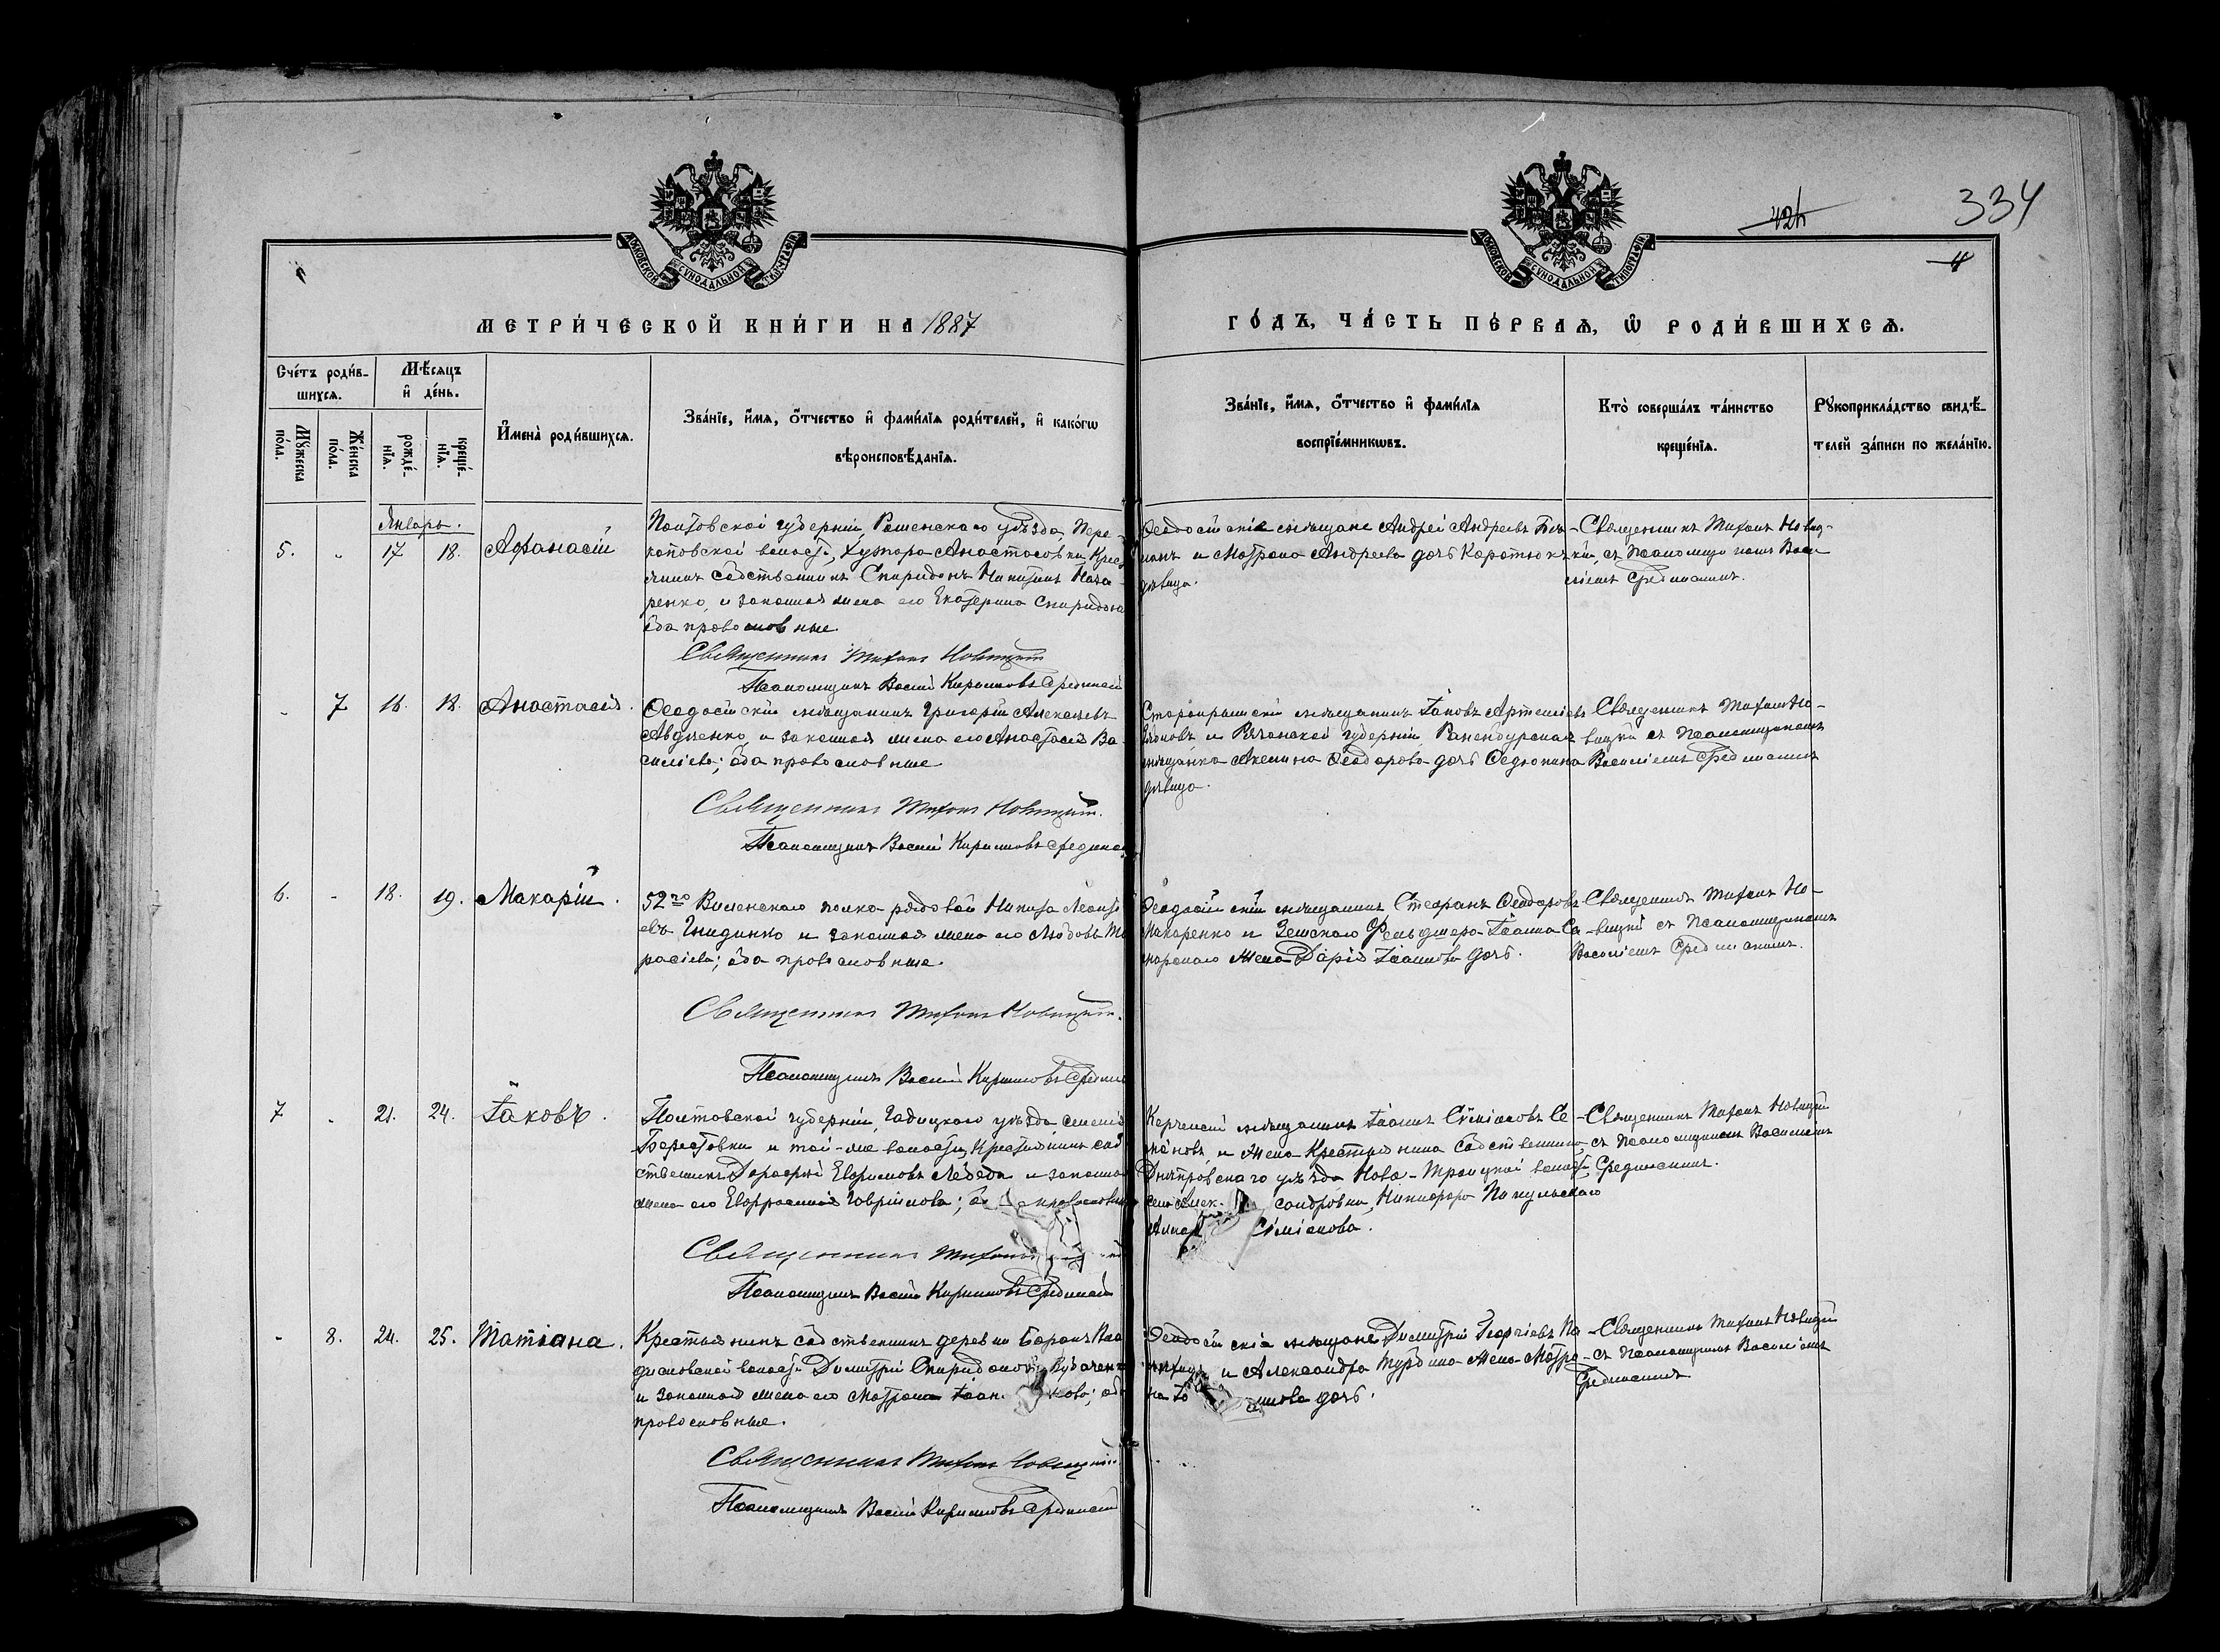 424
334
4
МОСКОВСКОЙ СѴНОДАЛЬНОЙ ТИПОГРАФІИ
МОСКОВСКОЙ СѴНОДАЛЬНОЙ ТИПОГРАФІИ
МЕТРИ́ЧЕСКОЙ КНИ́ГИ НА 1887
ГО́ДЪ, ЧА́СТЬ ПЕ́РВАѦ, Ѡ҆ РОДИ́ВШИХСѦ.
Сче́тъ роди́в-
шихсѧ.
Мѣ́сѧцъ
и҆ де́нь.
Мꙋ́жеска
по́ла.
Же́нска
по́ла.
рожде́-
нїѧ.
креще́-
нїѧ.
И҆мена̀ роди́вшихсѧ.
Зва́нїе, и҆́мѧ, ѻ҆́тчество и҆ фами́лїѧ роди́телей, и҆ како́гѡ
вѣроисповѣ́данїѧ.
Зва́нїе, и҆́мѧ, ѻ҆́тчество и҆ фами́лїѧ
воспрїе́мникѡвъ.
Кто̀ соверша́лъ та́инство
креще́нїѧ.
Рꙋкоприкла́дство свидѣ́-
телей за́писи по жела́нїю.
Январь.
5. - 17. 18. Афанасій
Полтовской губерніи, Роменскаго уѣзда, Пере-
коповской волости, хутора Анастасовки Крест
янинъ собственникъ Спиридонъ Никитинъ Наза-
ренко, и законная жена его Екатерина Спиридона
оба православные.
Священникъ Тихонъ Новицкій
Псаломщикъ Василій Кирилловъ Срединскій
Ѳеодосійскіе мѣщане Андрей Андреевъ
и Матрона Андреева дочь
дѣвица.
Священникъ Тихонъ Новиц-
кій, съ Псаломщикомъ Васи
ліемъ Срединскимъ.
- 7 16. 18. Анастасія.
Ѳеодосійскій мѣщанинъ Григорій Алексѣевъ
Авдѣенко, и законная жена его Анастасія Ва-
силіева; оба православные
Священникъ Тихонъ Новицкій.
Псаломщикъ Василій Кирилловъ Срединск
Старокрымскій мѣщанинъ Іаковъ Артеміевъ
и Рязанской губерніи, Раненбурская
мѣщанка Акелина Ѳеодорова дочь Ѳедюнина
дѣвица.
Священникъ Тихонъ Но-
вицкій съ Псаломщикомъ
Василіемъ Срединскимъ
6. - 18. 19. Макарій.
52го Виленскаго полка рядовой Никита Леонт
евъ Гнидинко и законная жена его Любовь Та
расіева; оба православные.
Священникъ Тихонъ Новицкій.
Псаломщикъ Василій Кирилловъ Средин
Ѳеодосійскій мѣщанинъ Стефанъ Ѳеодоровъ
Макаренко и Земскаго Фельдшера Іоанна Са
жена Дарія Іоаннова дочь.
Священникъ Тихонъ Но-
вицкій съ Псаломщикомъ
Василіемъ Срединскимъ.
7 - 21. 24. Іаковъ.
Полтовской губерніи, Гадяцкаго уѣзда селенія
Берестовки и той-же волости, Крестьянинъ соб
ственникъ Дорофей Евфимовъ Лебедь и законная
жена его Евфросинія Гавріилова; православны
Священникъ Тихонъ
Псаломщикъ Василій Кирилловъ Срединскій
Керченскій мѣщанинъ Іоаннъ Симіоновъ Се-
меновъ, и жена Крестьянина Собственника
Днѣпровскаго уѣзда, Ново-Троицкой волости,
села Алек сандровки, Никифора Пикульскаго
Симіонова.
Священникъ Тихонъ Новицкій
съ Псаломщикомъ Василіемъ
Срединскимъ.
- 8. 24. 25. Татіана.
Крестьянинъ собственникъ деревни Баранъ Вла
диславской волости Димитрій Спиридоновъ
и законная жена его Матрона Іоан кова; оба
православные.
Священникъ Тихонъ Новицкій
Псаломщикъ Василій Кирилловъ Срединскій
Ѳеодосійскіе мѣщане Димитрій Георгіевъ
и Александра жена Матро-
на дочь.
Священникъ Тихонъ Новицкій
съ Псаломщикомъ Василіемъ
Срединскимъ